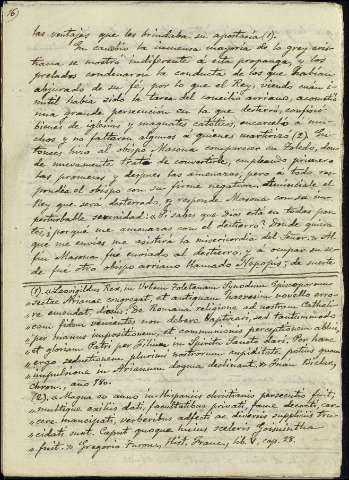 16)
las ventajas que les brindaba su apostasía (1).
En cambio la inmensa mayoría de la grey cris-
tiana se mostró indiferente á esta propaganda, y los
prelados condenaron la conducta de los que habían
abjurado de su fé, por lo que el Rey, viendo cuan i-
nútil había sido la tarea del concilio arriano, acometió
una grande persecución en la que desterró, confiscó
bienes de iglesias y magnates católicos, encarceló á mu-
chos y no faltaron algunos á quienes martirizó (2). En-
tonces hizo al obispo Masona comparecer en Toledo, don-
de nuevamente trata de convertirle, empleando primero
las promesas y después las amenazas, pero á todo res-
pondía el obispo con su firme negativa. Anúnciale el
Rey que será desterrado, y responde Masona con su im-
perturbable serenidad: «Si sabes que Dios está en todas par-
tes, ¿porqué me amenazas con el destierro? Donde quiera
que me envíes me asistirá la misericordia del Señor.» Al
fin Masona fue enviado al destierro, y á ocupar su se-
de fué otro obispo arriano llamado Nepopis; de suerte
(1). «Leovigildus Rex, in Urbem Toletanam Synodum Episcoporum
sectae Arrianae congregat, et antiquam haeresim novello erro-
re emendat, dicens: de Romana religione ad nostram Catholi-
cam fidem venientes non debere baptizari, sed tantummodo
per manus impositionem, et communionis perceptionem ablui,
et gloriam Patri per Filium in Spiritu Sancto dari. Per hanc
ergo seductionem plurimi nostrorum cupiditate potius quam
impulsione in Arrianum dogma declinant.» Juan Biclar.,
Chron., año 580.
(2). «Magna eo anno in Hispaniis christianis persecutio fuit,
multique exiliis dati, facultatibus privati, fame decocti, car-
cere mancipati, verberibus adfecti ac diversis suppliciis tru-
cidati sunt. Caput quoque huius sceleris Goisuintha
fuit.» Gregorio Turon., Hist. Franc., lib. V, cap. 38.